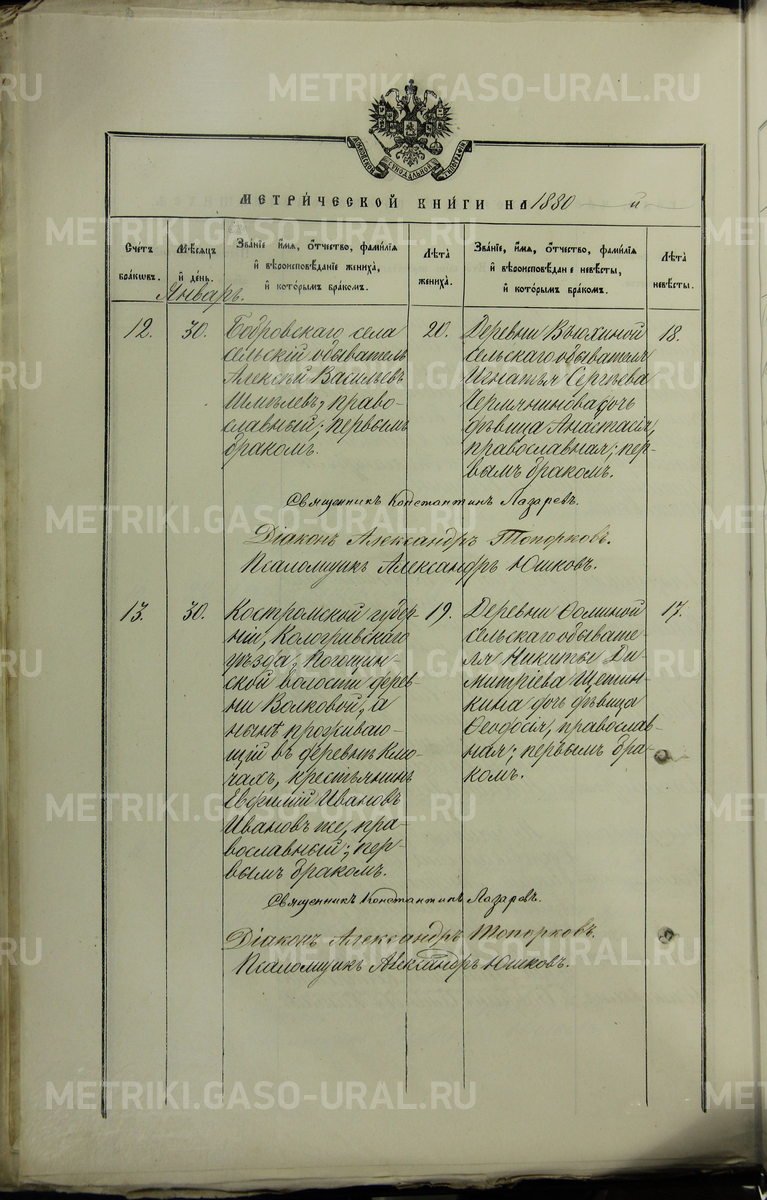 METRIKI.GASO-URAL.RU
МЕТРИ́ЧЕСКОЙ КНИ́ГИ НА 1880 й
Счетъ бра́кѡвъ.
Мѣ́сяцъ й де́нь.
Зва́нїе и́мѧ, ѻ́тчество, фами́лїѧ й вѣроисповѣ́данїе жениха̀, й кото́рымъ бра́комъ.
Лѣ́та жениха̀.
Зва́нїе, и́мѧ, ѻ́тчество, фами́лїѧ й вѣроисповѣ́данїе невѣ́сты, й кото́рымъ бра́комъ.
Лѣ́та невѣ́сты.
Январь.
12.
30.
Бобровскаго села
сельскій обыватель
Алексѣй Васильевъ
Шмелевъ, право-
славный; первымъ
бракомъ.
20.
Деревни Вьюхиной
сельскаго обывателя
Игнатья Сергѣева
дочь
дѣвица Анастасія,
православная; пер-
вымъ бракомъ.
18.
Священникъ Константинъ Лазаревъ.
Діаконъ Александръ Топорковъ.
Псаломщикъ Александръ Юшковъ.
13.
30.
Костромской губер-
ніи, Кологривскаго
уѣзда,
ской волости дерев-
ни Волковой, а
нынѣ проживаю-
щій въ деревнѣ Клю-
чахъ, крестьянинъ
Евфимій Ивановъ
Ивановъ же, пра-
вославный; пер-
вымъ бракомъ.
19.
Деревни Фоминой
сельскаго обывате-
ля Никиты Ди-
митріева Щетин-
кина дочь дѣвица
Ѳеодосія, православ-
ная; первымъ бра-
комъ.
17.
Священникъ Константинъ Лазаревъ.
Діаконъ Александръ Топорковъ.
Псаломщикъ Александръ Юшковъ.